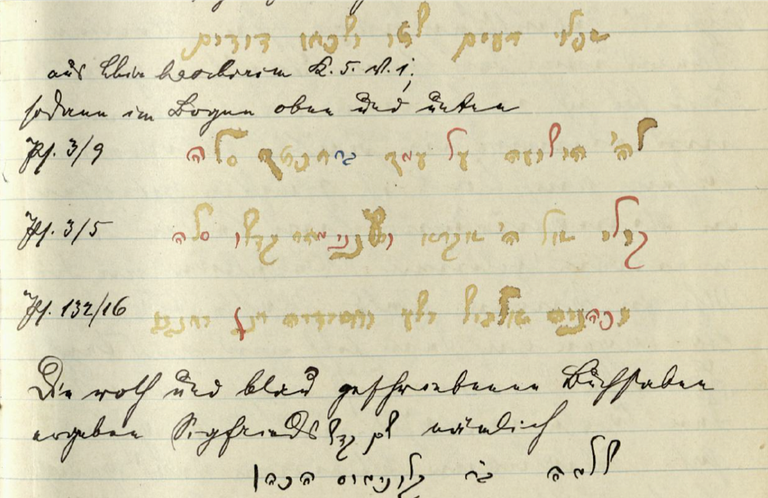 אכלו רעים שתו ושכרו דודים
aus Schir haschirim K. 5. V. 1;
sodann im Bogen oben und unten
Ps. 3/9 לה' הישועה על עמך ברכתך סלה
Ps. 3/5 קולי אל ה' אקרא ויענני מהר קדשו סלה
Ps. 132/16 וכהניה אלביש ישע וחסידיה רנן
Die roth und blau geschriebenen Buchstaben
ergeben Sigfrieds שם קדש nämlich
שלמה בר קלונימוס הכהן